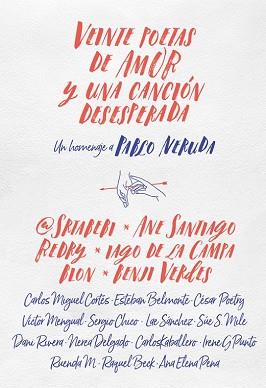 VEINTE POETAS
DE AMOR
Y UNA CANCIÓN
DESESPERADA
Un homenaje a PABLO NERUDA
@SRTABEBI * ANE SANTIAGO
REDRY * IAGO DE LA CAMPA
DION * BENJI VERDES
Carlos Miguel Cortés · Esteban Belmonte · César Poetry
Víctor Mengual · Sergio Chuco · Lae Sánchez · Süe S. Mile
Dani Rivera · Nerea Delgado · CarlosKaballero · Irene G Punto
Ruenda M · Raquel Beck · Ana Elena Pena